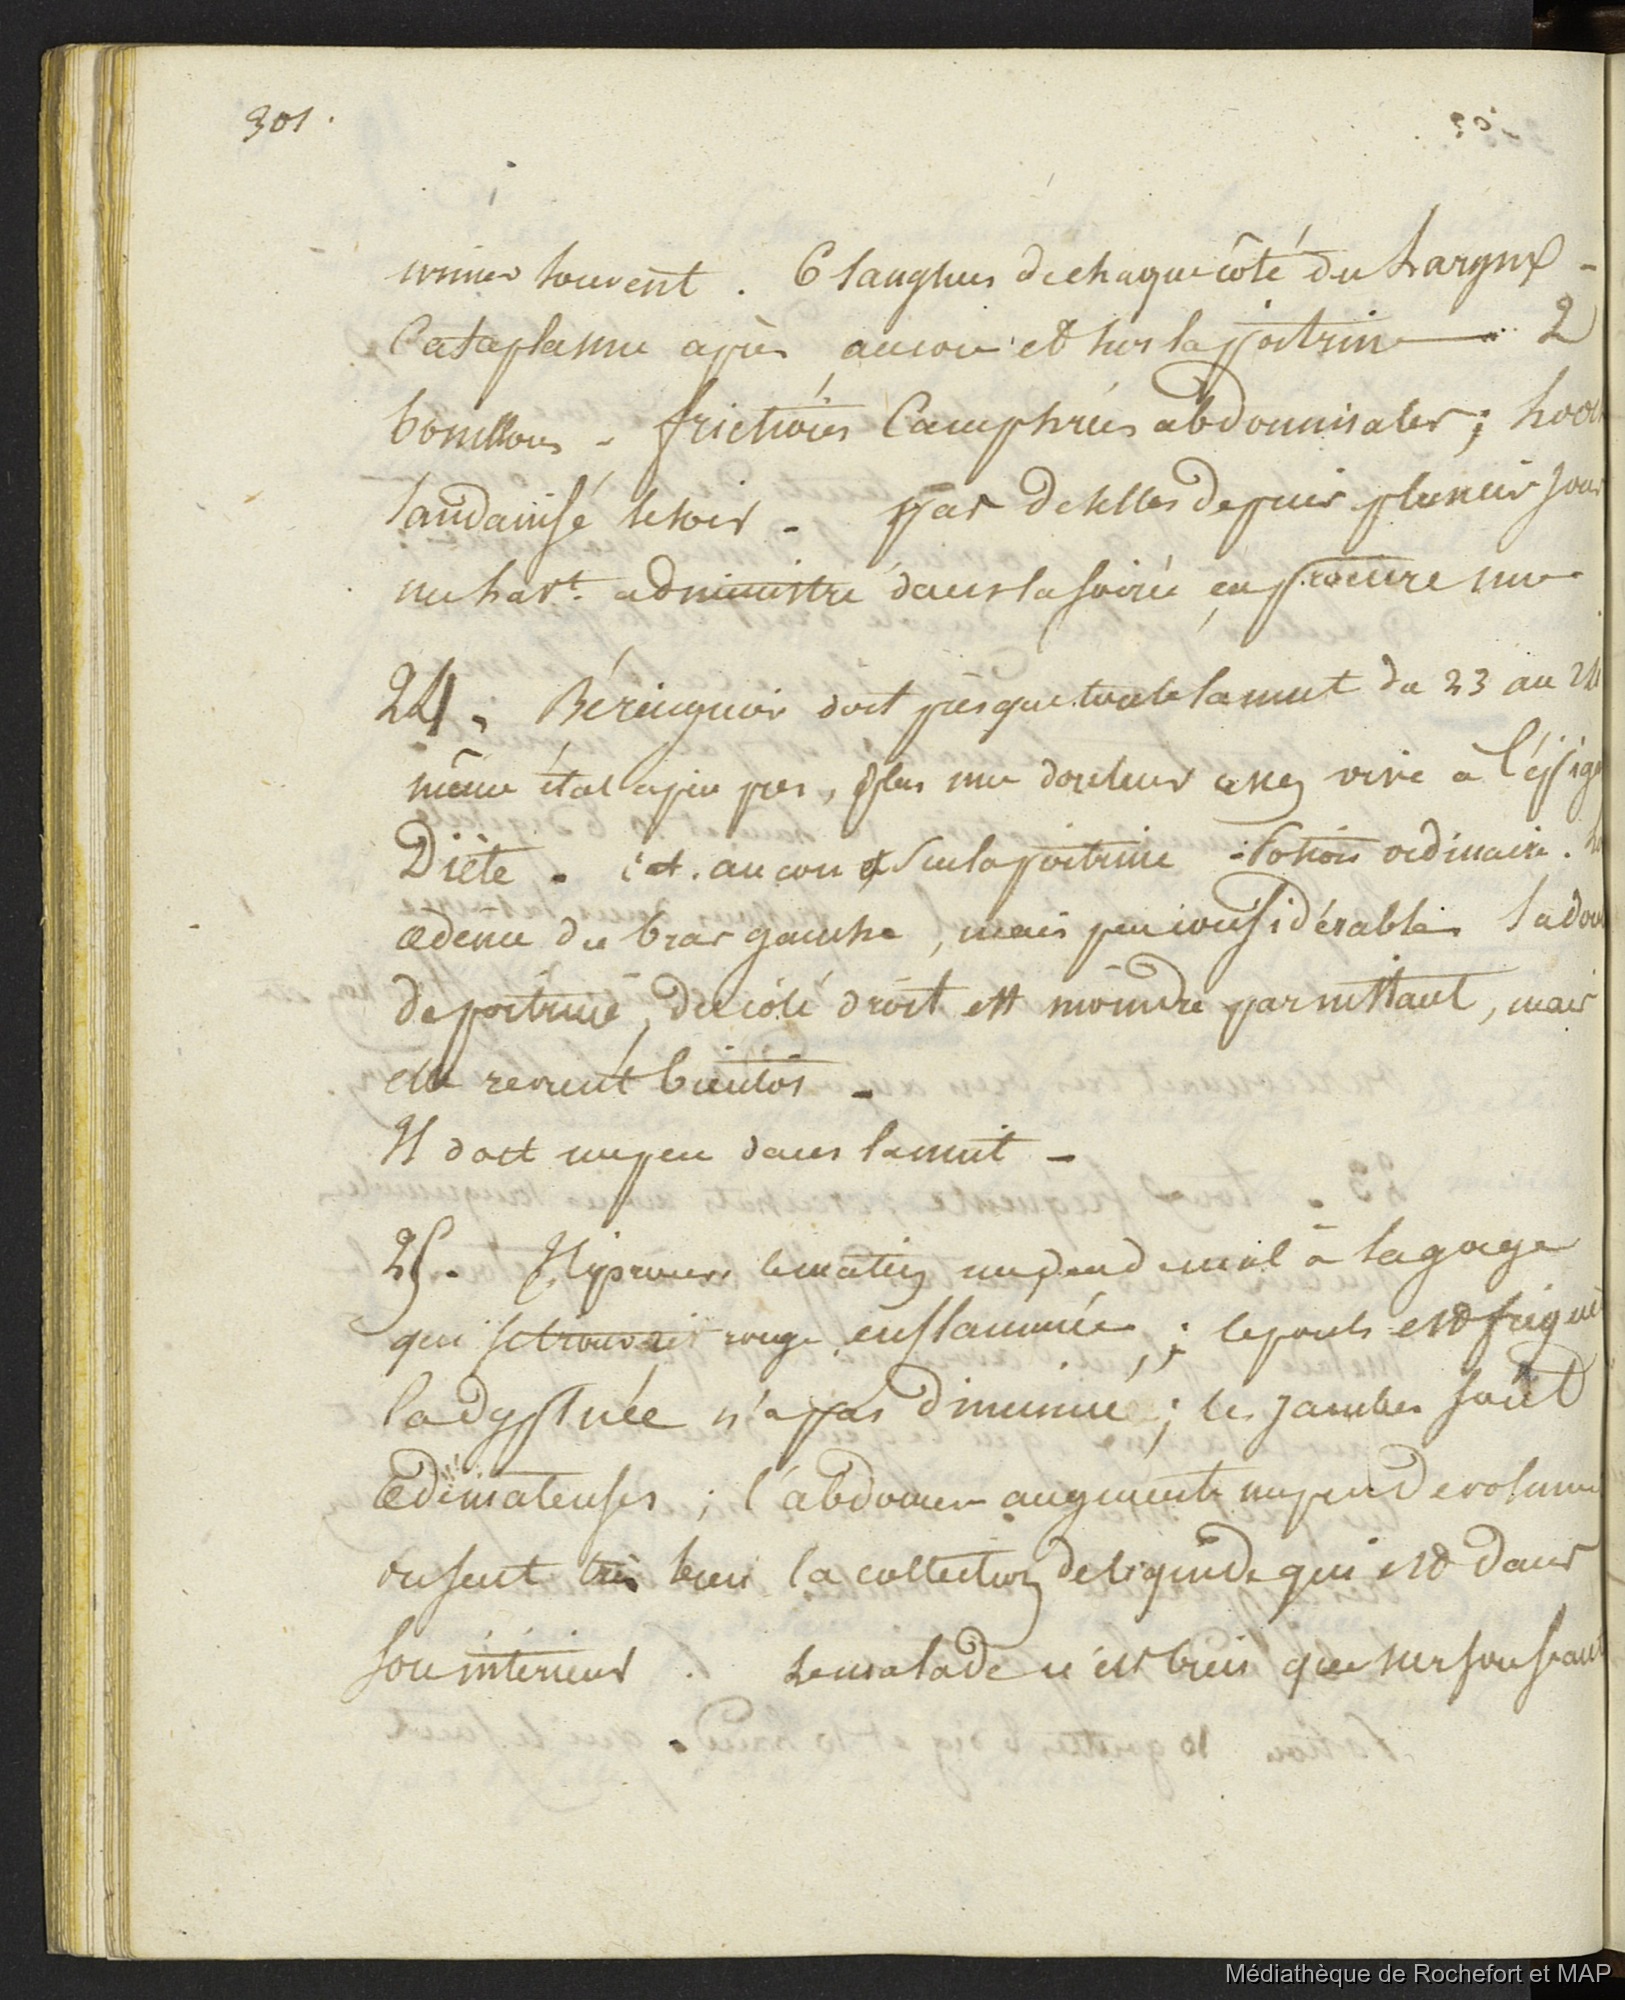 301.
uriner souvent. 6 sangsues de chaque côté du Larynx -
Cataplasme après au cou et sur la poitrine 2
bouillons - frictions Camphrées abdominales; looch
laudanisé le soir - pas de selles depuis plusieurs jours
un lavt. administré dans la soirée en procure une
24. Bérenguier dort presque toute la nuit du 23 au 24
même état à peu près, plus une douleur assez vive à l'épig
Diète. id. au cou et sur la poitrine - Potion ordinaire.
œdème du bras gauche, mais peu considérable. la dou
de poitrine, du côté droit est moindre par instant, mais
elle revient bientôt -
Il dort un peu dans la nuit -
25. Il éprouve le matin un peu de mal à la gorge
qui se trouvait rouge enflammée; le pouls est fréqu
la dyspnée n'a pas diminué; les jambes sont
œdémateuses; l'abdomen augmente un peu de volume
on sent très bien la collection de liquide qui est dans
son intérieur. Le malade n'est bien que sur son séant
Médiathèque de Rochefort et MAP